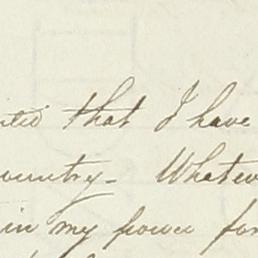 that I have
country. Whatev
in my power for